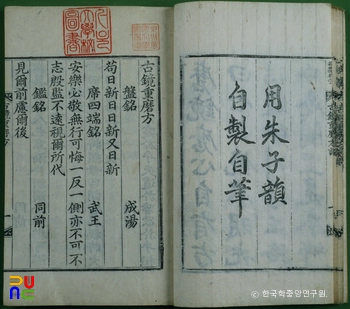 用朱子韻
自製自筆
古鏡重磨方
盤銘 成湯
苟日新日日新又日新
席四端銘 武王
安樂必敬無行可悔一反一側亦不可不
志殷監不遠視爾所代
鑑銘 同前
見爾前慮爾後
© 한국학중앙연구원